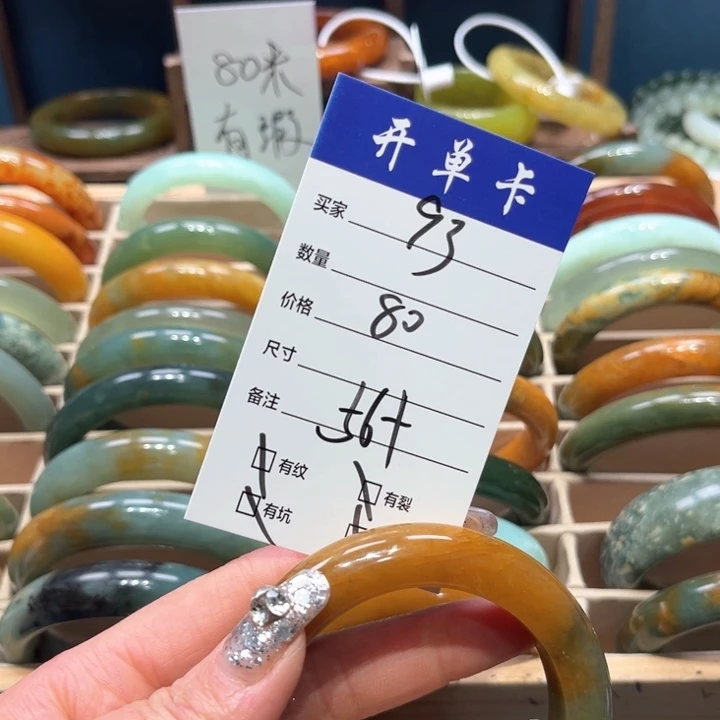 80米
有瑕
开单卡
买家 93
数量
价格 80
尺寸
备注 56+
有纹 有裂
有坑